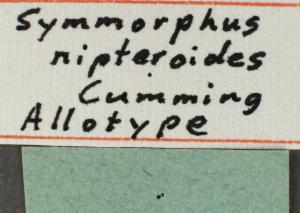 Symmorphus
nipteroides
Cumming
Allotype